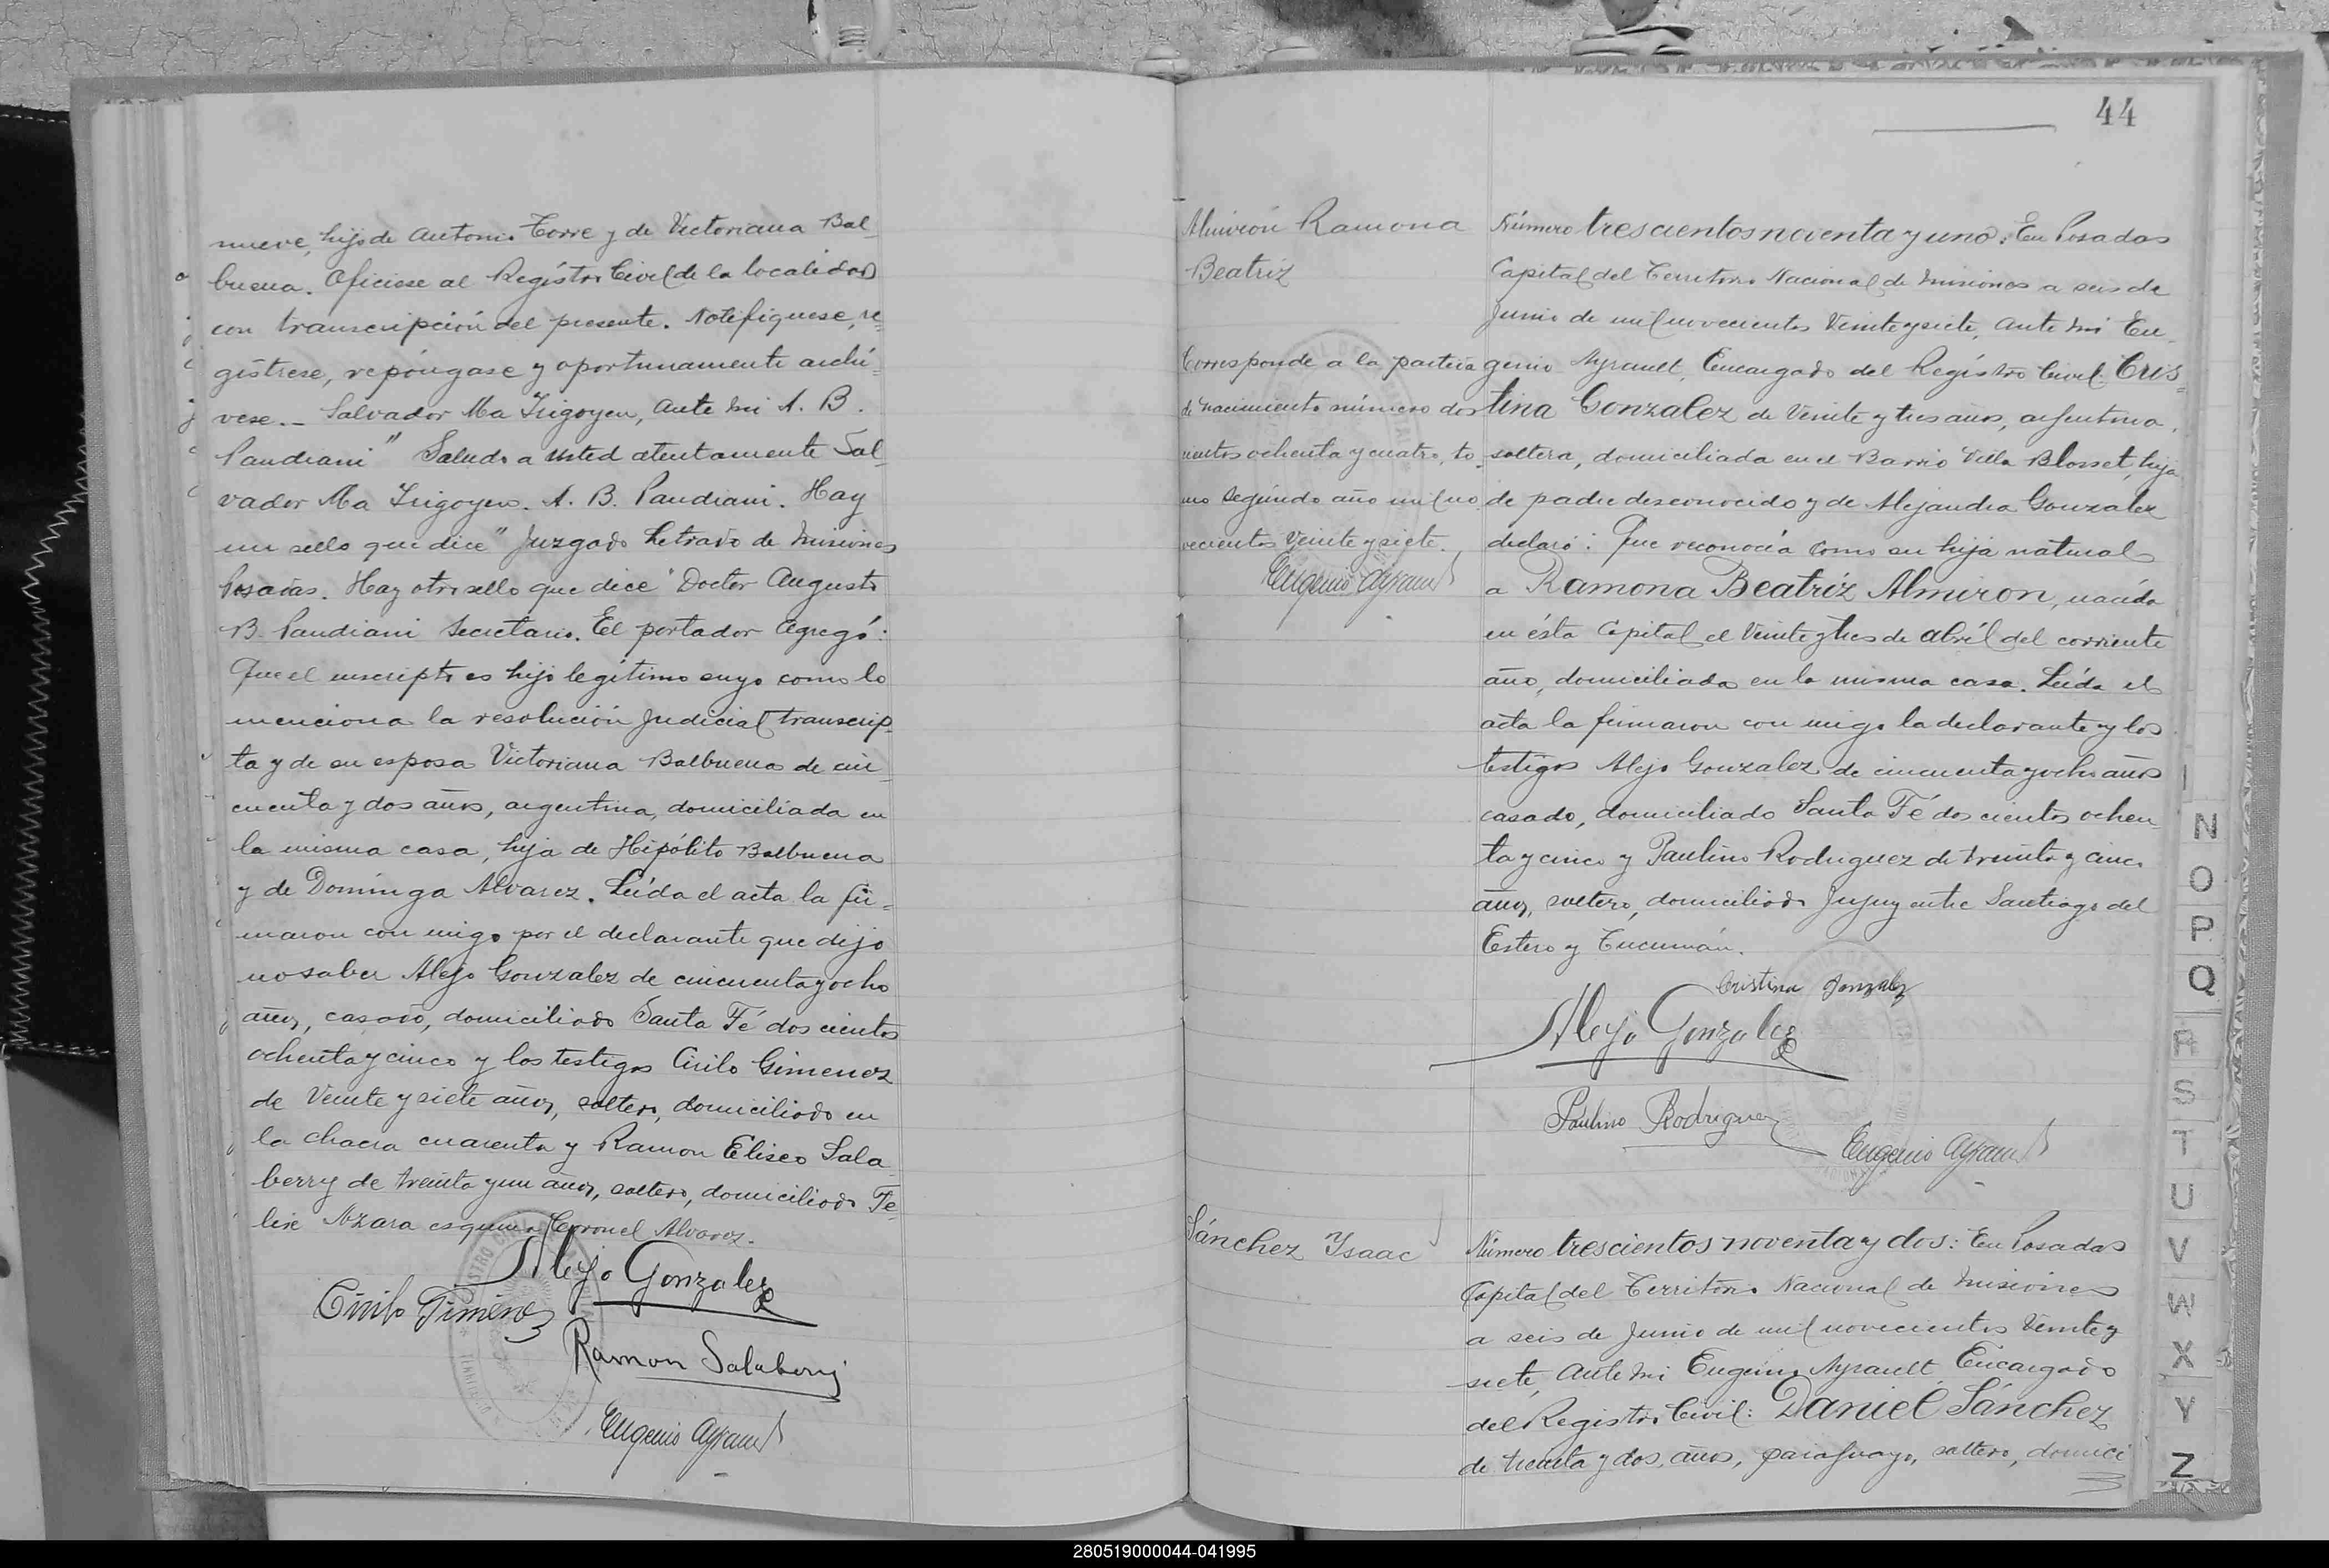 nueve, hijo de Antonio Torre y de Victoriana Bal-
buena. Ofíciese al Registro Civil de la localidad
con transcripción del presente. Notifíquese, re-
gístrese, repóngase y oportunamente archí-
vese._ Salvador Ma Irigoyen, Ante mi A. B.
Pandiani" Saludo a Usted atentamente Sal-
vador Ma Irigoyen. A. B. Pandiani. Hay
un sello que dice "Juzgado Letrado de Misiones
Posadas. Hay otro sello que dice "Doctor Augusto
B. Pandiani Secretario. El portador agregó:
Que el inscripto es hijo legítimo suyo como lo
menciona la resolución Judicial transcrip-
ta y de su esposa Victoriana Balbuena de cin-
cuenta y dos años, argentina, domiciliada en
la misma casa, hija de Hipólito Balbuena
y de Dominga Alvarez. Leída el acta la fir-
maron con migo por el declarante que dijo
no saber Alejo Gonzalez de cincuenta y ocho
años, casado, domiciliado Santa Fé dos cientos
ochenta y cinco y los testigos Cirilo Gimenez
de Veinte y siete años, soltero, domiciliado en
la chacra cuarenta y Ramon Eliseo Sala-
berry de treinta y un años, soltero, domiciliado Fe-
lix Azara esquina Coronel Alvarez.
Alejo Gonzalez
Cirilo Jimenez
Ramon Salaberry
Eugenio Ayrault
44
Almirón Ramona
Beatriz
Corresponde a la partida
de nacimiento número dos
cientos ochenta y cuatro, to-
mo segundo año mil no-
vecientos Veinte y siete.
Eugenio Ayrault
Número trescientos noventa y uno: En Posadas
Capital del Territorio Nacional de Misiones a seis de
Junio de mil novecientos Veinte y siete, Ante mi Eu-
genio Ayrault, Encargado del Registro Civil: Cris-
tina Gonzalez de Veinte y tres años, argentina,
soltera, domiciliada en el Barrio Villa Blosset, hija
de padre desconocido y de Alejandra Gonzalez
declaró: Que reconocía como su hija natural
a Ramona Beatríz Almiron, nacida
en ésta Capital el Veinte y tres de abril del corriente
año, domiciliada en la misma casa. Leída el
acta la firmaron con migo la declarante y los
testigos Alejo Gonzalez de cincuenta y ocho años
casado, domiciliado Santa Fé dos cientos ochen-
ta y cinco y Paulino Rodriguez de treinta y cinco
años, soltero, domiciliado Jujuy entre Santiago del
Estero y Tucumán.
Cristina Gonzalez
Alejo Gonzalez
Paulino Rodriguez
Eugenio Ayrault
Sánchez Isaac
Número trescientos noventa y dos: En Posadas
Capital del Territorio Nacional de Misiones
a seis de Junio de mil novecientos Veinte y
siete, Ante mi Eugenio Ayrault, Encargado
del Registro Civil: Daniel Sánchez
de treinta y dos años, paraguayo, soltero, domici
N
O
P
Q
R
S
T
U
V
W
X
Y
Z
280519000044-041995